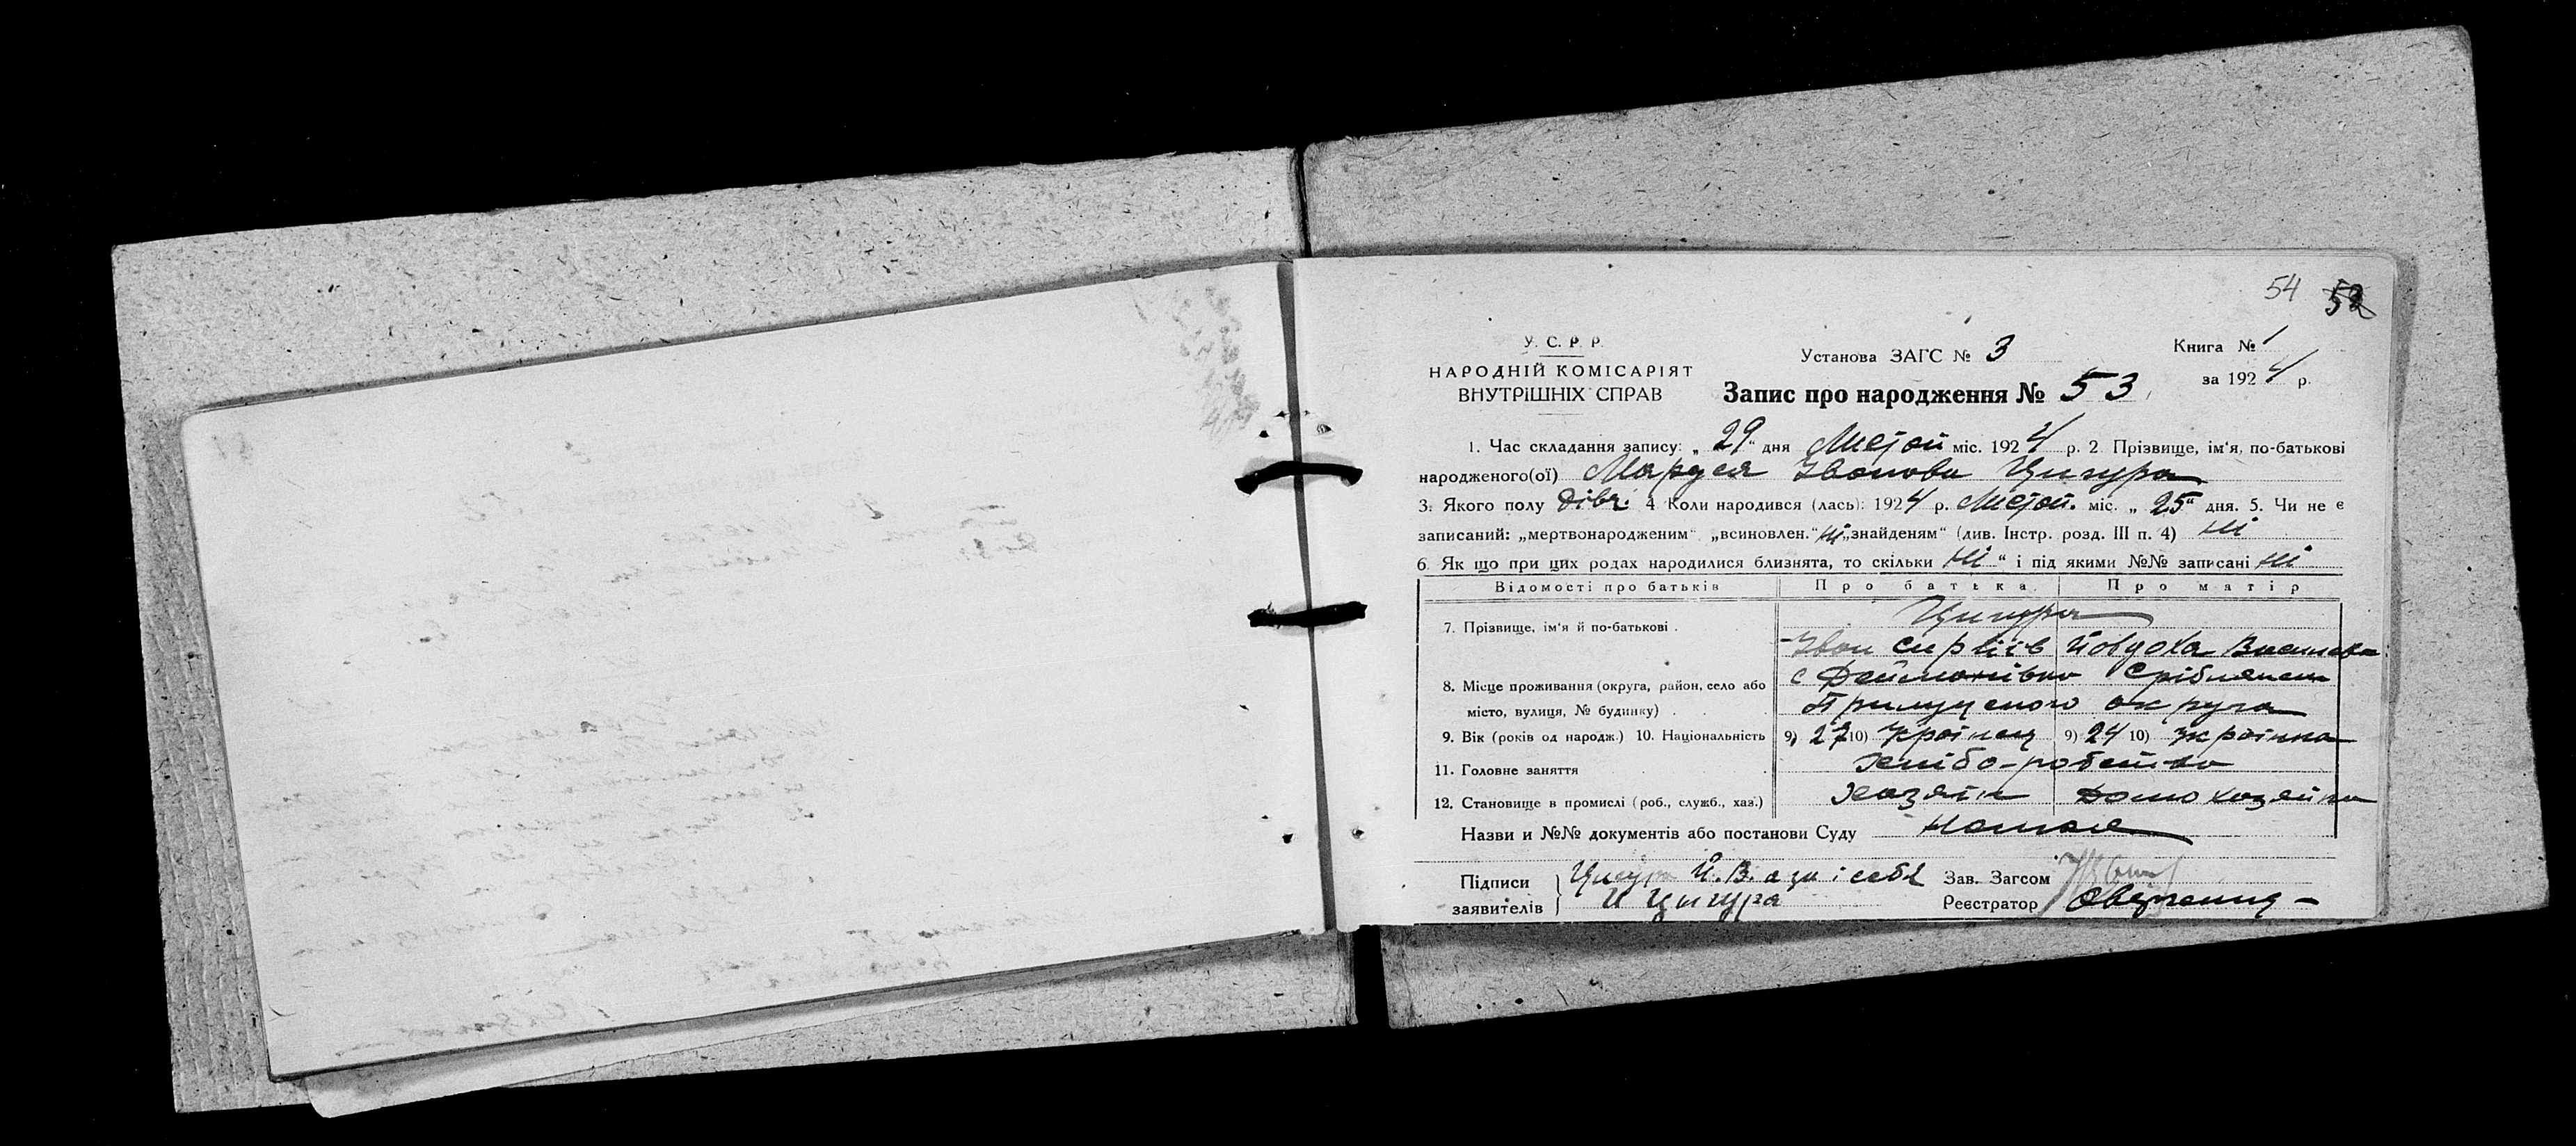 54 52
У. С. Р. Р.
НАРОДНІЙ КОМІСАРІЯТ
ВНУТРІШНІХ СПРАВ
Установа ЗАГС № 3
Книга № 1
за 1924 р.
Запис про народження № 53
1. Час складання запису: „29“ дня міс. 1924 р. 2. Прізвище, ім'я, по-батькові
народженого(ої) Маруся Іванова Цигура
3. Якого полу дівч. 4 Коли народився (лась): 1924 р. міс. „25“ дня. 5. Чи не є
записаний: „мертвонародженим“ „всиновлен.“ ні „знайденям“ (див. Інстр. розд. III п. 4) ні
6. Як що при цих родах народилися близнята, то скільки ні “ і під якими №№ записані ні
Відомості про батьків Про батька Про матір
7. Прізвище, ім'я й по-батькові . Цигура
Іван Сиргіїв Йовдоха
8. Місце проживання (округа, район, село або с Дейманівка
місто, вулиця, № будинку) . . Прилуцького округа
9. Вік (років од народж.) 10. Національність 9) 27 10) Українец 9) 24 10) Українка
11. Головне заняття хлібо-робство
12. Становище в промислі (роб., служб., хаз.) Хазяїн Домохазяйка
Назви и №№ документів або постанови Суду Немає
Підписи заявителів Цигура Й. В. а за і себе
И Цигура
Зав. Загсом
Реєстратор